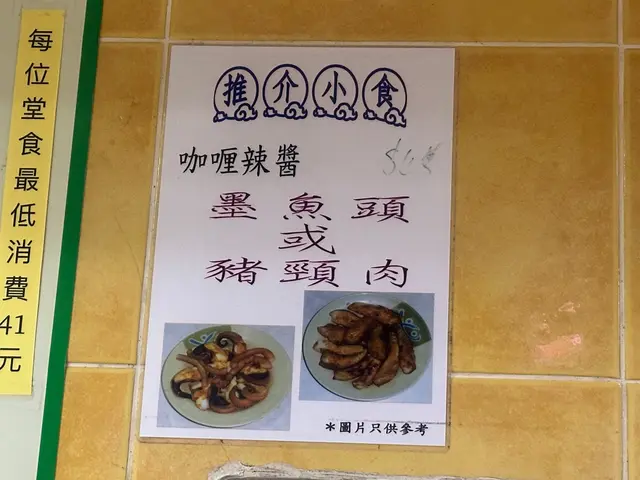 每位堂食最低消費41元
推介小食
咖喱辣醬
墨魚頭
或
豬頸肉
＊圖片只供參考